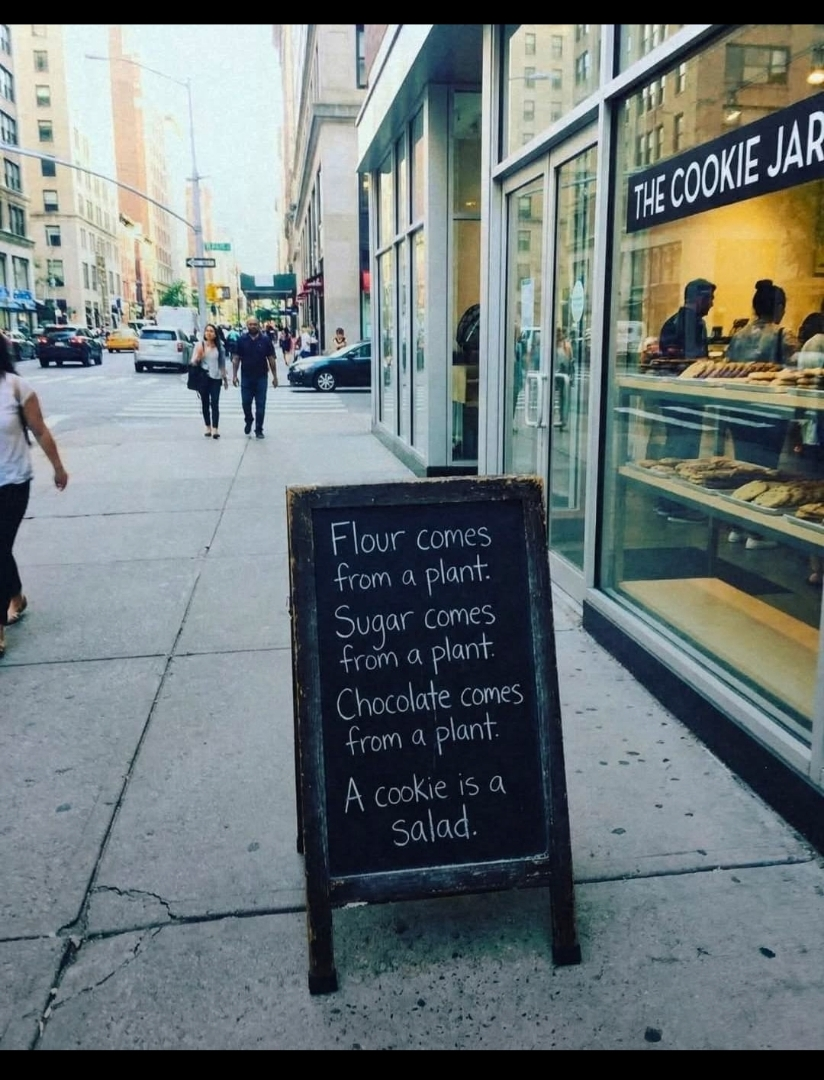 THE COOKIE JAR
Flour comes
from a plant.
Sugar comes
from a plant.
Chocolate comes
from a plant.
A cookie is a
salad.